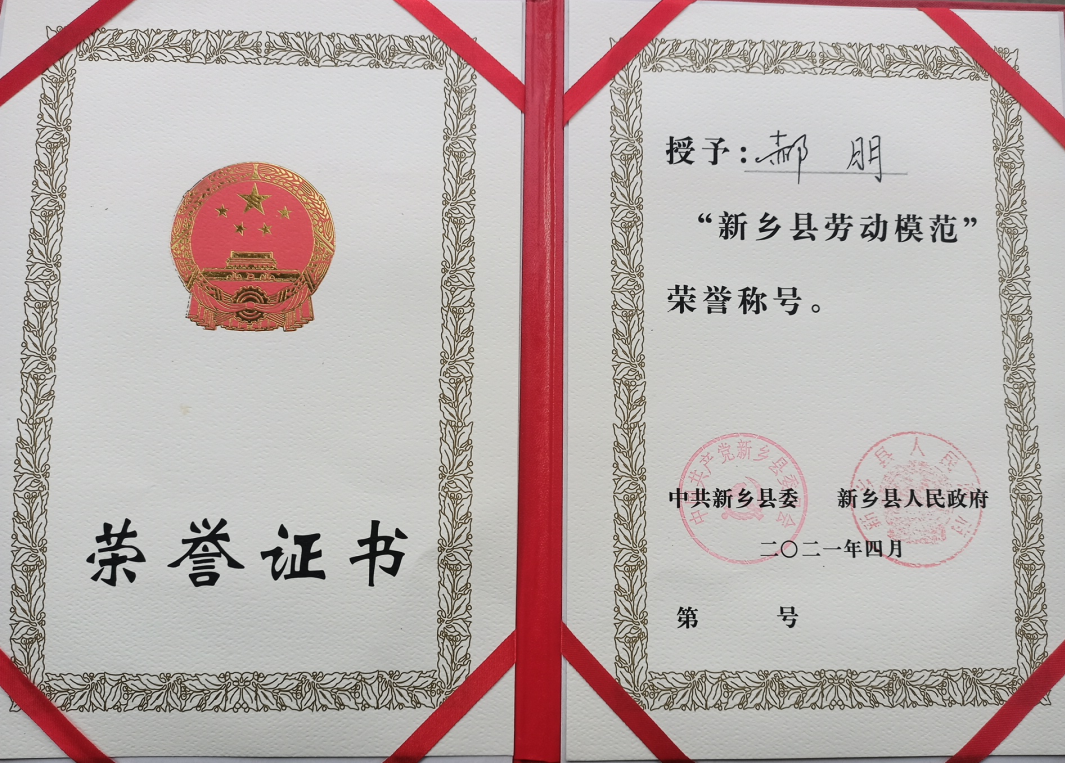 荣誉证书
授予：郝朋
“新乡县劳动模范”
荣誉称号。
中共新乡县委 新乡县人民政府
二〇二一年四月
第 号
中国共产党新乡县委员会
新乡县人民政府